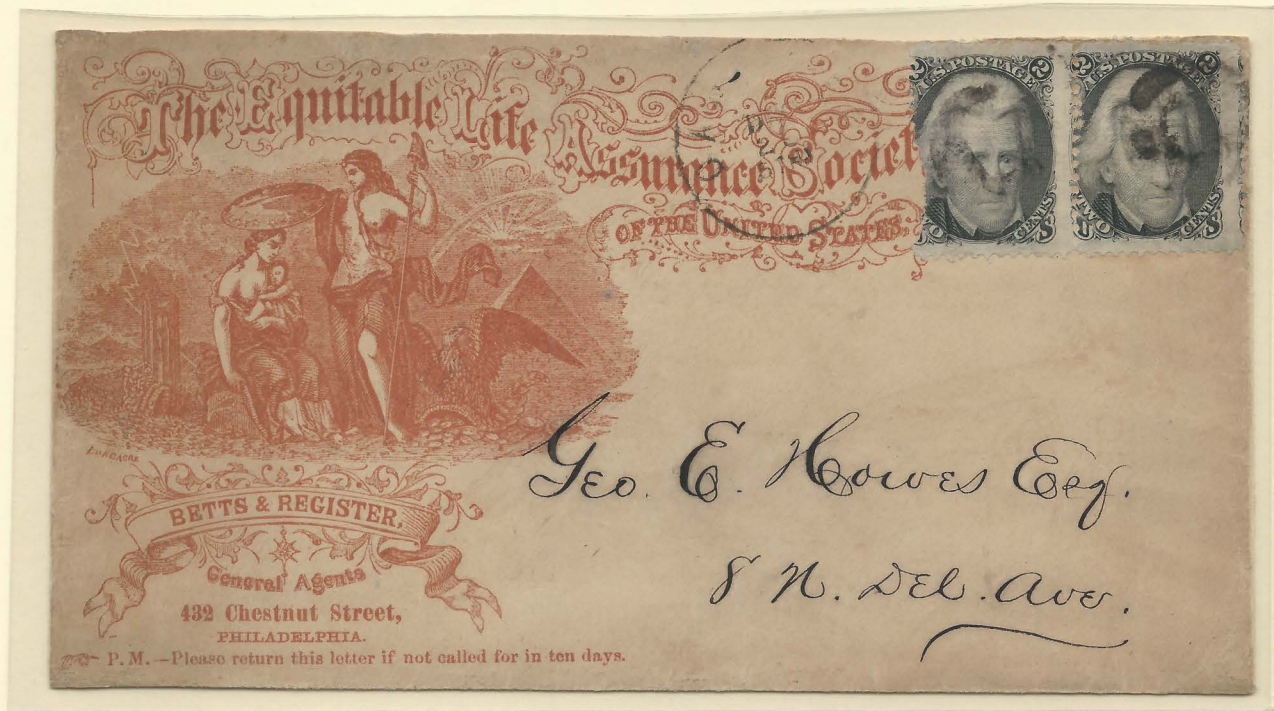 The Equitable Life
Assurance Societ
OF THE UNITED STATES.
2 U.S. POSTAGE 2
WO CENTS
2 U.S. POSTAGE 2
TWO CENTS
Geo. E. Howes Esq.
8 N. Del. Ave.
BETTS & REGISTER,
General Agents
432 Chestnut Street,
PHILADELPHIA.
P. M.—Please return this letter if not called for in ten days.